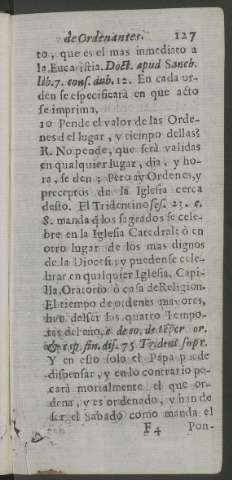 de Ordenantes. 127
to, que es el mas inmediato a
la Eucaristia. Doct. apud Sanch.
lib. 7. cons. dub. 12. En cada or-
den se especificarà en que acto
se imprima.
10 Pende el valor de las Orde-
nes del lugar, y tiempo dellas?
R. No pende, que serà validas
en qualquier lugar, dia, y ho-
ra, se den; Pero ay Ordenes, y
preceptos de la Iglesia cerca
desto. El Tridentino ses. 23. c.
8. manda q̃ los sagrados se cele-
bre en la Iglesia Catedral: ò en
otro lugar de los mas dignos
de la Diocesi; y puedense cele-
brar en qualquier Iglesia, Capi-
lla, Oratorio ò casa de Religion.
El tiempo de ordenes mayores,
han de ser los quatro Tempo-
res del año, dis. 75 Trident. supr.
Y en esto solo el Papa puede
dispensar, y en lo contrario pe-
carà mortalmente el que or-
dena, y es ordenado, y han de
ser el Sabado como manda el
F4 Pon-